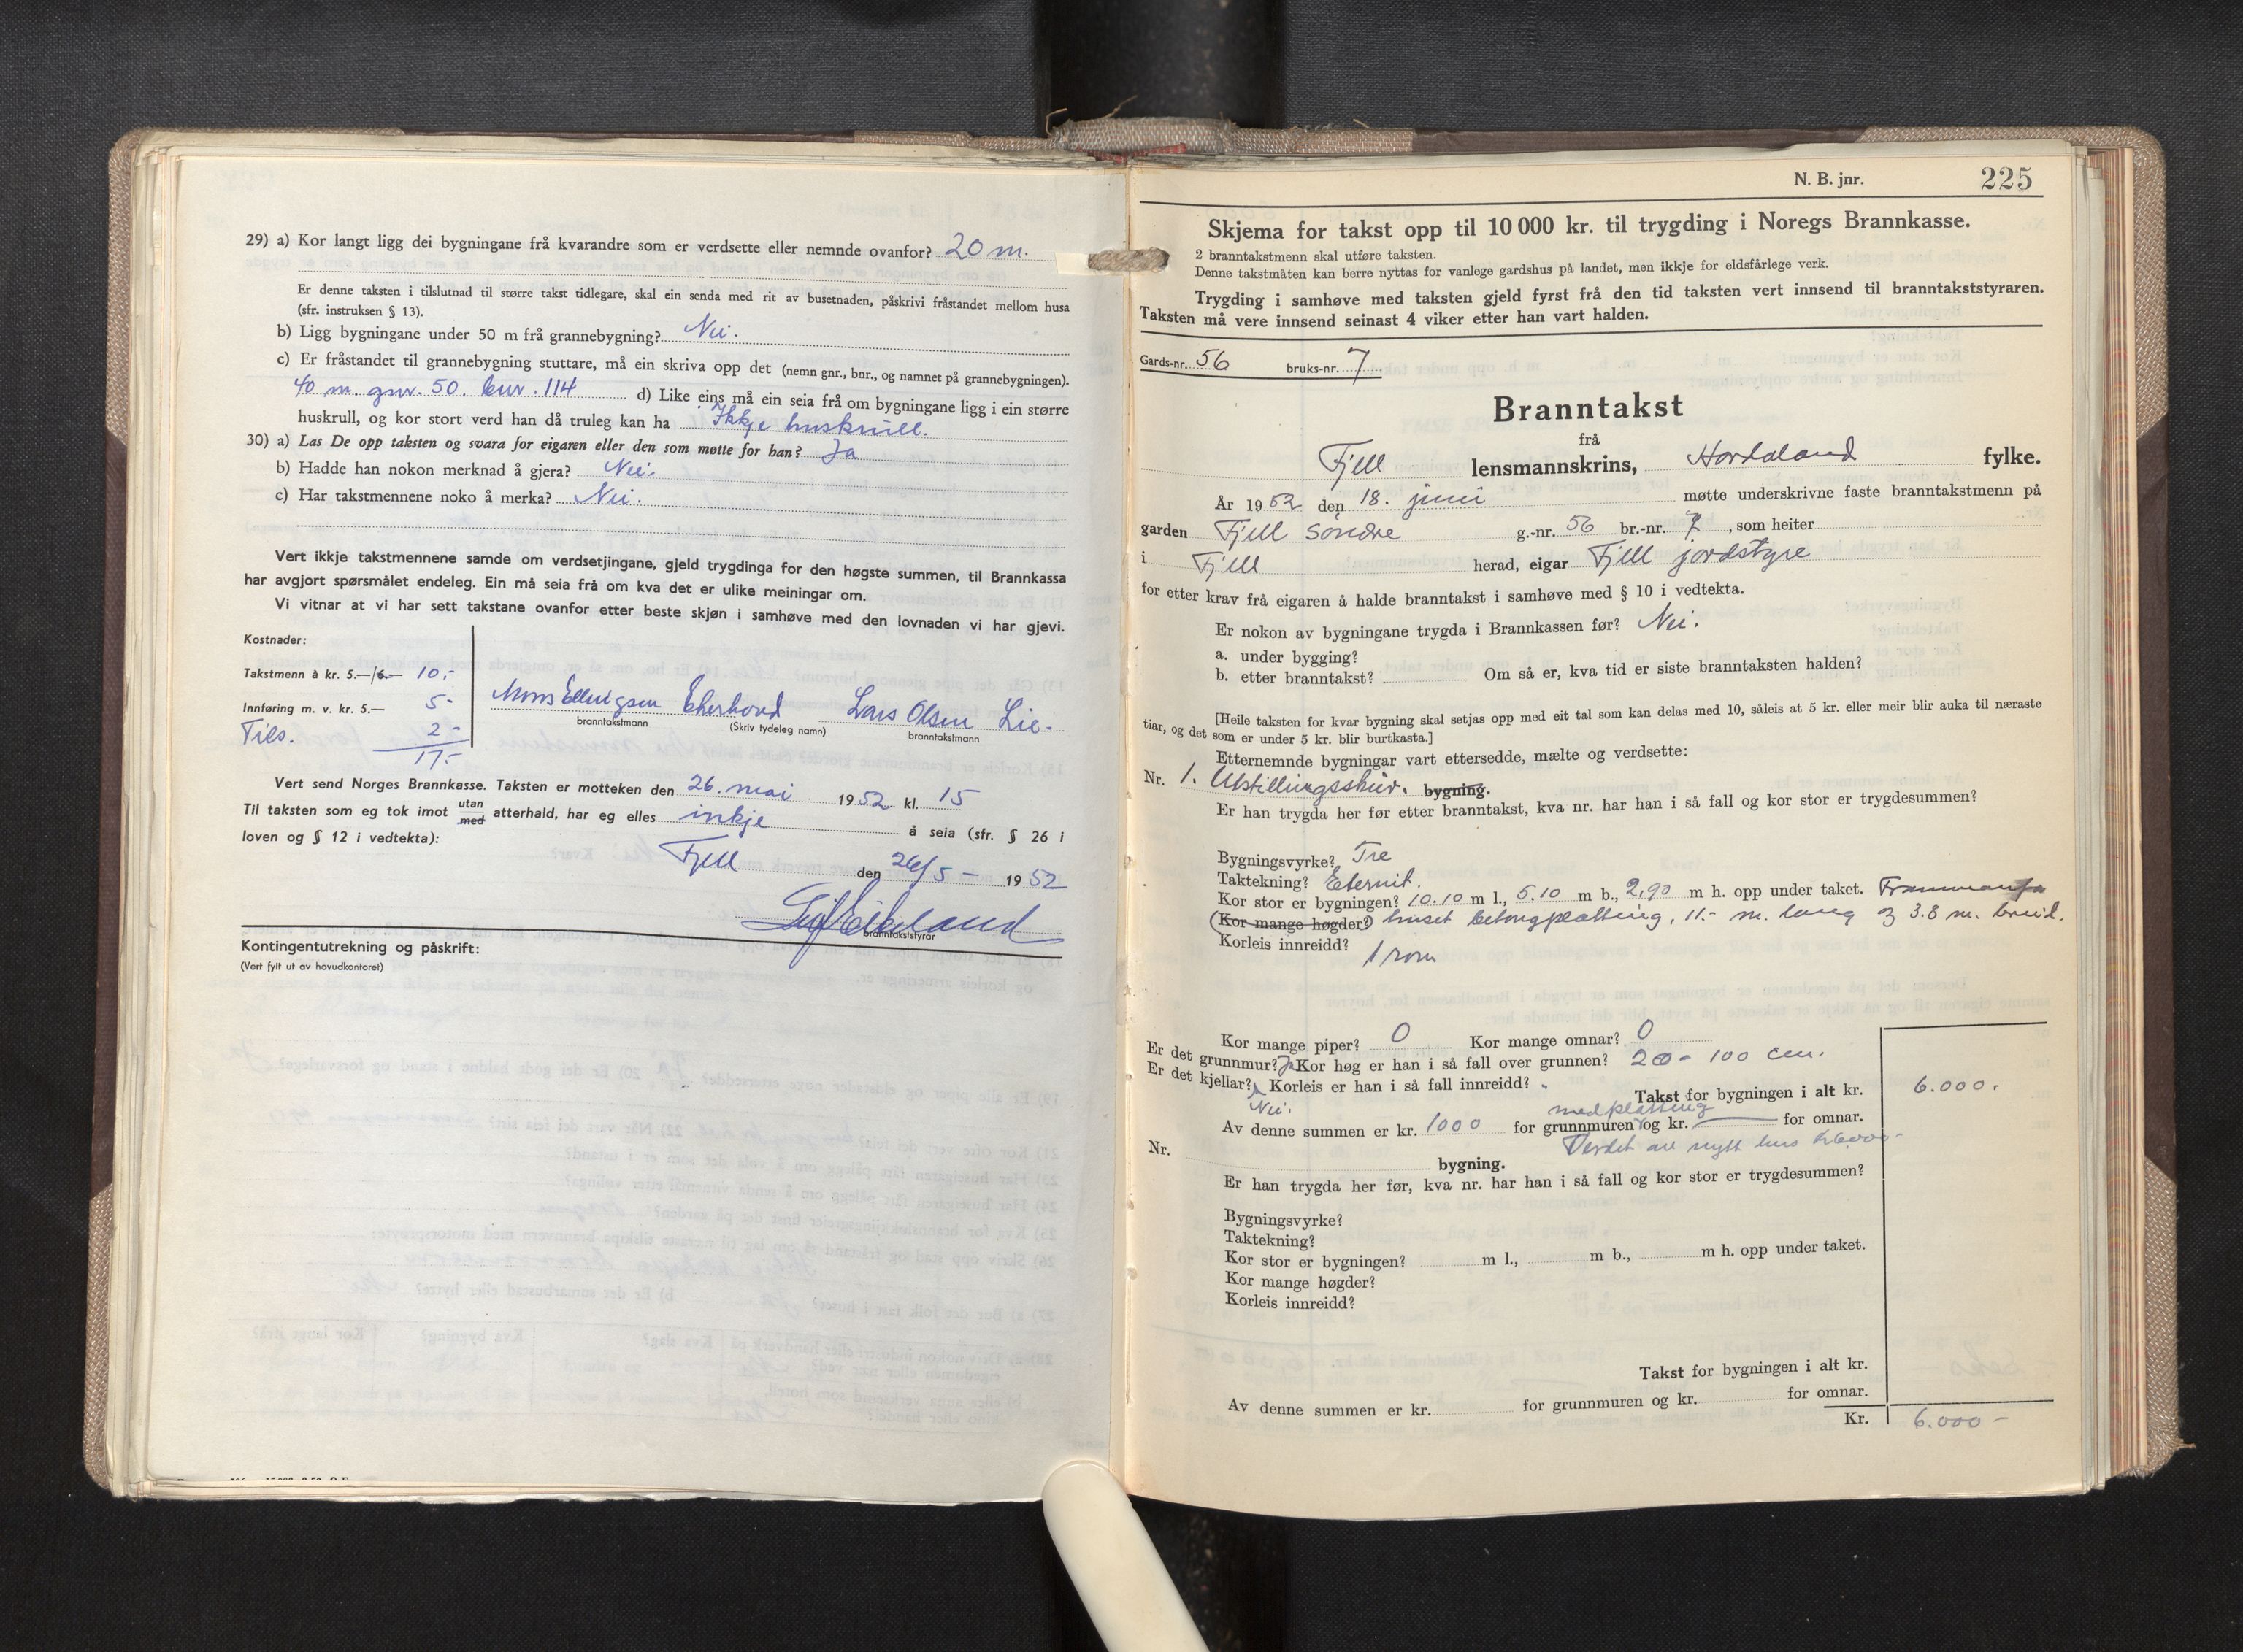 29) a) Kor langt ligg dei bygningane frå kvarandre som er verdsette eller nemnde ovanfor? 20 m.
Er denne taksten i tilslutnad til større takst tidlegare, skal ein senda med rit av busetnaden, påskrivi fråstandet mellom husa
(sfr. instruksen § 13).
b) Ligg bygningane under 50 m frå grannebygning? Nei.
c) Er fråstandet til grannebygning stuttare, må ein skriva opp det (nemn gnr., bnr., og namnet på grannebygningen).
40 m. gnr. 50. bnr. 114 d) Like eins må ein seia frå om bygningane ligg i ein større
huskrull, og kor stort verd han då truleg kan ha Ikkje huskrull.
30) a) Las De opp taksten og svara for eigaren eller den som møtte for han? Ja
b) Hadde han nokon merknad å gjera? Nei.
c) Har takstmennene noko å merka? Nei.
Vert ikkje takstmennene samde om verdsetjingane, gjeld trygdinga for den høgste summen, til Brannkassa
har avgjort spørsmålet endeleg. Ein må seia frå om kva det er ulike meiningar om.
Vi vitnar at vi har sett takstane ovanfor etter beste skjøn i samhøve med den lovnaden vi har gjevi.
Kostnader:
Takstmenn à kr. 5.—/6.— 10,-
Innføring m. v. kr. 5.— 5-
Tils. 2-
17.-
Mons Ellingsen Ekerhovd Lars Olsen Lie.
branntakstmann (Skriv tydeleg namn) branntakstmann
Vert send Norges Brannkasse. Taksten er motteken den 26. mai 1952 kl. 15
Til taksten som eg tok imot utan/med atterhald, har eg elles inkje å seia (sfr. § 26 i
loven og § 12 i vedtekta):
Fjell den 26/5 - 1952
branntakststyrar
Kontingentutrekning og påskrift:
(Vert fylt ut av hovudkontoret)
N. B. jnr. 225
Skjema for takst opp til 10 000 kr. til trygding i Noregs Brannkasse.
2 branntakstmenn skal utføre taksten.
Denne takstmåten kan berre nyttas for vanlege gardshus på landet, men ikkje for eldsfårlege verk.
Trygding i samhøve med taksten gjeld fyrst frå den tid taksten vert innsend til branntakststyraren.
Taksten må vere innsend seinast 4 viker etter han vart halden.
Gards-nr. 56 bruks-nr. 7
Branntakst
frå
Fjell lensmannskrins, Hordaland fylke.
År 1952 den 18. juni møtte underskrivne faste branntakstmenn på
garden Fjell Søndre g.-nr. 56 br.-nr. 7, som heiter
i Fjell herad, eigar Fjell jordstyre
for etter krav frå eigaren å halde branntakst i samhøve med § 10 i vedtekta.
Er nokon av bygningane trygda i Brannkassen før? Nei.
a. under bygging?
b. etter branntakst? Om så er, kva tid er siste branntaksten halden?
[Heile taksten for kvar bygning skal setjas opp med eit tal som kan delas med 10, såleis at 5 kr. eller meir blir auka til næraste
tiar, og det som er under 5 kr. blir burtkasta.]
Etternemnde bygningar vart ettersedde, mælte og verdsette:
Nr. 1. Utstillingsskur. bygning.
Er han trygda her før etter branntakst, kva nr. har han i så fall og kor stor er trygdesummen?
Bygningsvyrke? Tre
Taktekning? Eternit.
Kor stor er bygningen? 10.10 m l., 5.10 m b., 2,90 m h. opp under taket. Frammanfor
(Kor mange høgder?) huset betongplatting, 11.- m. lang og 3.8 m. breid.
Korleis innreidd? 1 rom
Kor mange piper? 0 Kor mange omnar? 0
Er det grunnmur? Ja Kor høg er han i så fall over grunnen? 20 - 100 cm.
Er det kjellar? Korleis er han i så fall innreidd?
Nei.
Takst for bygningen i alt kr. 6.000.
med platting
Av denne summen er kr. 1000 for grunnmuren og kr. — for omnar.
Verdet av nytt hus kr 6000-
Nr. bygning.
Er han trygda her før, kva nr. har han i så fall og kor stor er trygdesummen?
Bygningsvyrke?
Taktekning?
Kor stor er bygningen? m l., m b., m h. opp under taket.
Kor mange høgder?
Korleis innreidd?
Takst for bygningen i alt kr.
Av denne summen er kr. for grunnmuren og kr. for omnar.
Kr. 6.000 -